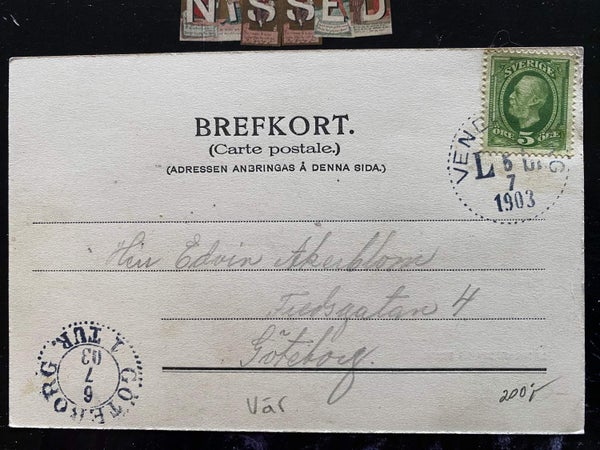 NISSED
SVERIGE
ÖRE 5 ÖRE
BREFKORT.
(Carte postale.)
(ADRESSEN ANBRINGAS Å DENNA SIDA.)
L
7
1903
Herr Edvin Åkerblom
Fredsgatan 4
Göteborg.
GÖTEBORG 1 TUR
6
7
03
Vår